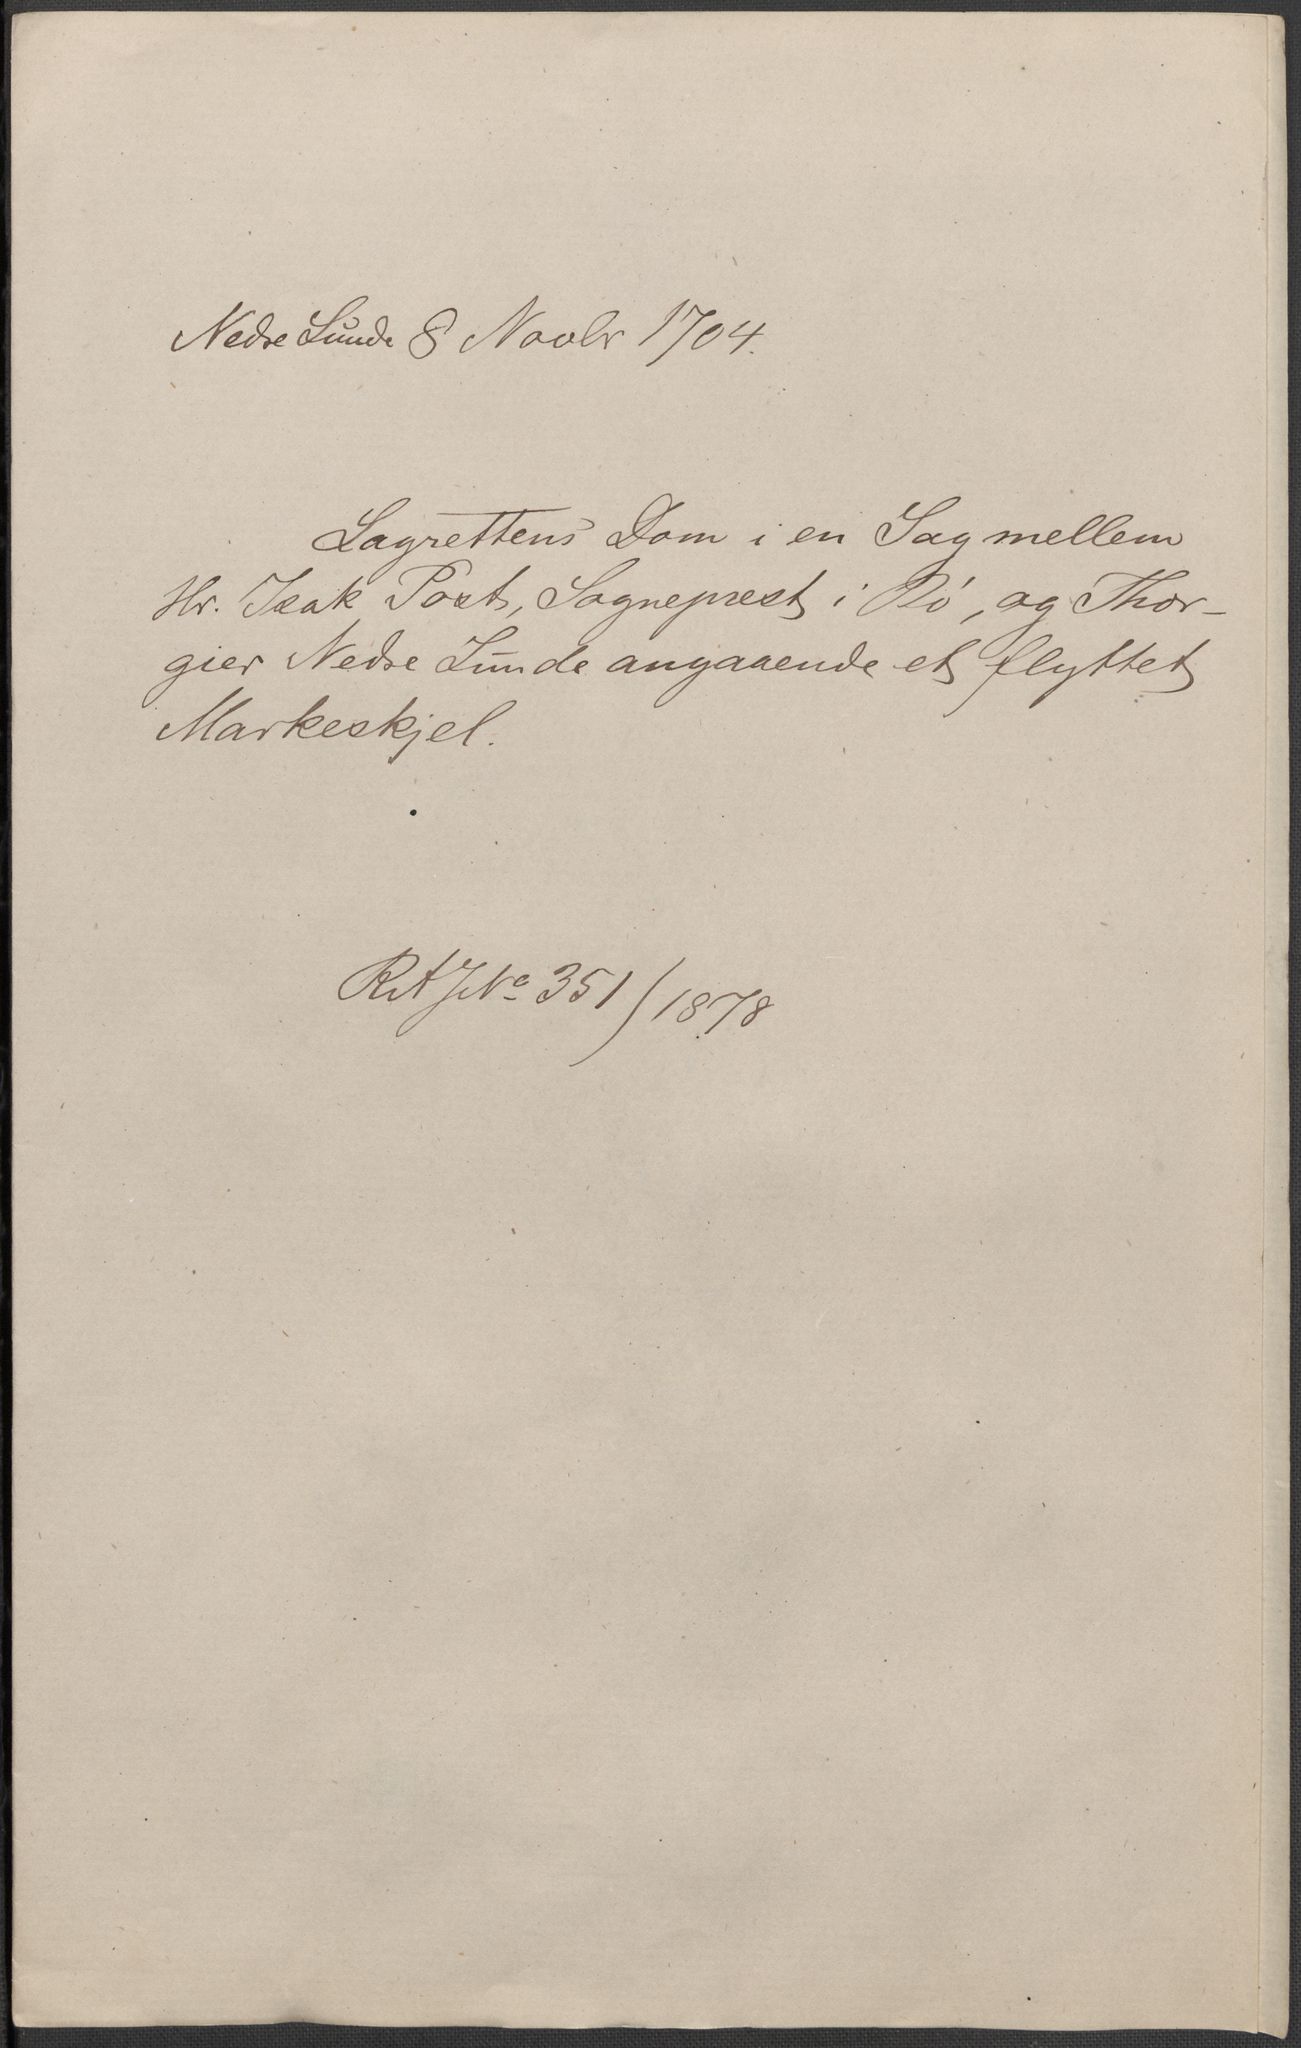 Nedre Lunde 8 Novbr 1704.
Lagrettens Dom i en Sag mellem
Hr. Isak Post, Sogneprest i Bö, og Thor-
gier Nedre Lunde angaaende et flyttet
Markeskjel.
RA JNo 351/1878